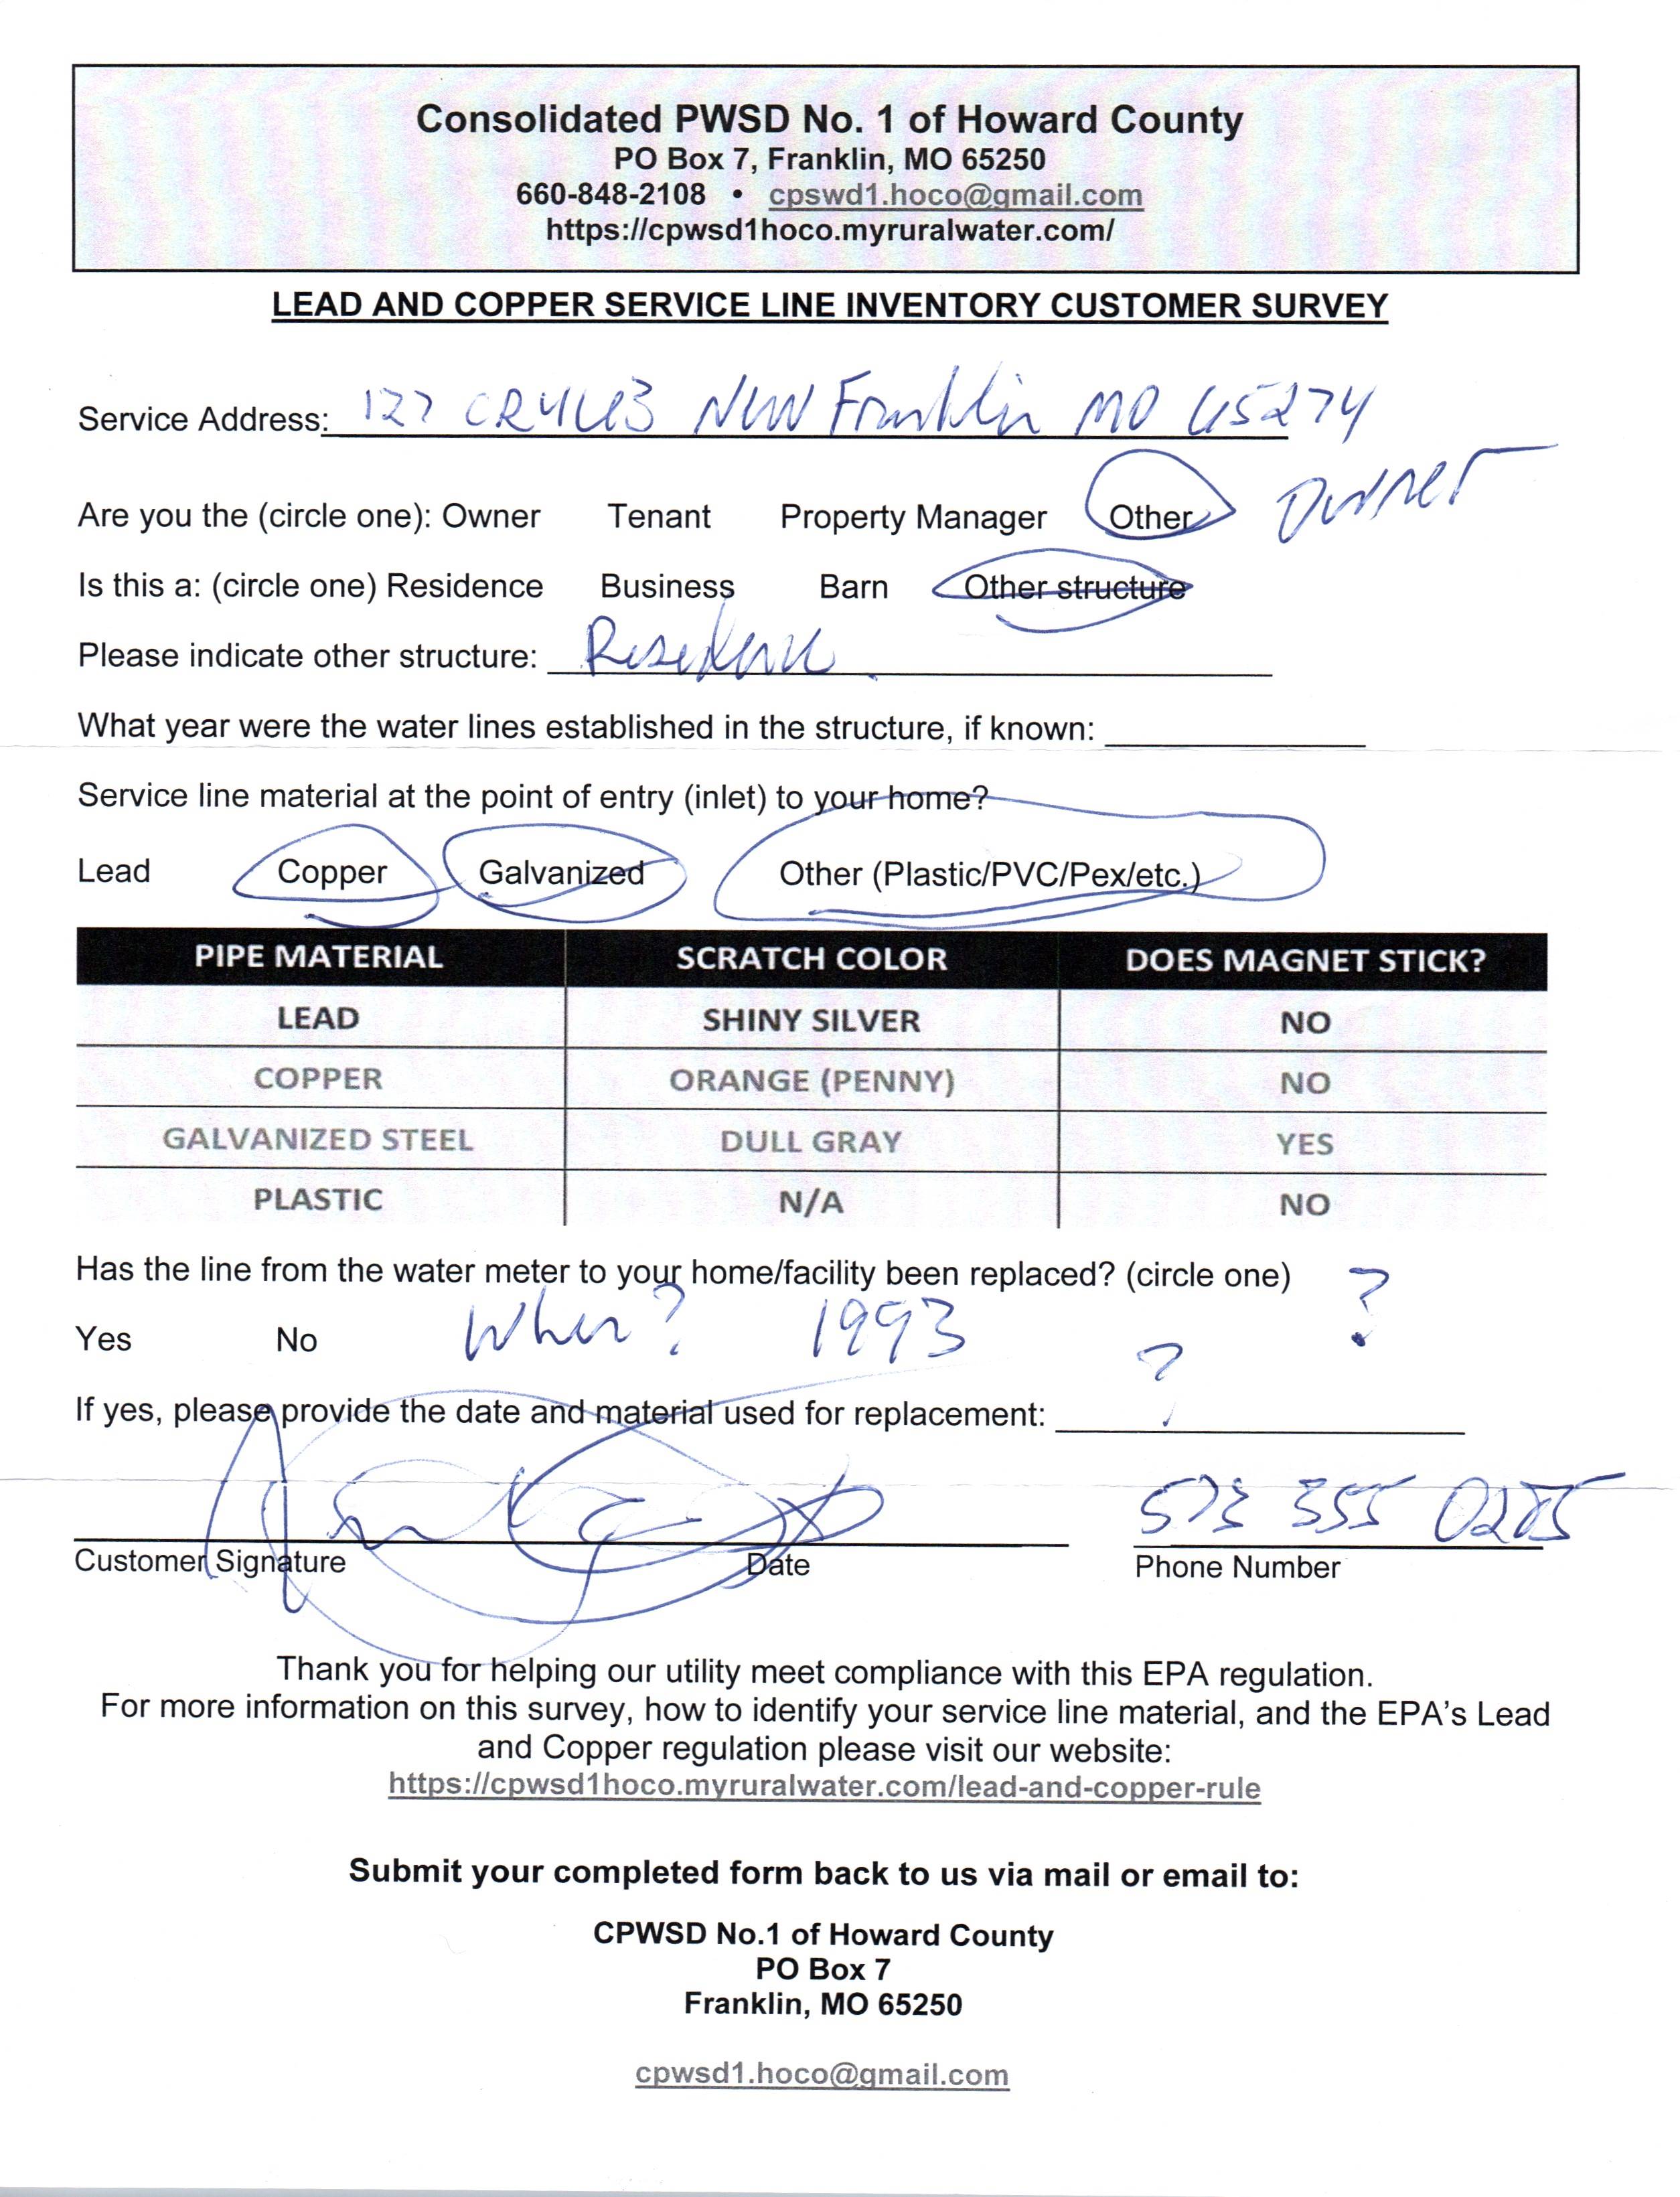 Consolidated PWSD No. 1 of Howard County
PO Box 7, Franklin, MO 65250
660-848-2108 • cpswd1.hoco@gmail.com
https://cpwsd1hoco.myruralwater.com/
LEAD AND COPPER SERVICE LINE INVENTORY CUSTOMER SURVEY
Service Address: 127 CR 463 New Franklin MO 65274
Are you the (circle one): Owner Tenant Property Manager Other Owner
Is this a: (circle one) Residence Business Barn Other structure
Please indicate other structure: Residence
What year were the water lines established in the structure, if known:
Service line material at the point of entry (inlet) to your home?
Lead Copper Galvanized Other (Plastic/PVC/Pex/etc.)
PIPE MATERIAL SCRATCH COLOR DOES MAGNET STICK?
LEAD SHINY SILVER NO
COPPER ORANGE (PENNY) NO
GALVANIZED STEEL DULL GRAY YES
PLASTIC N/A NO
Has the line from the water meter to your home/facility been replaced? (circle one) ?
Yes No When? 1993
If yes, please provide the date and material used for replacement: ?
573 355 0285
Customer Signature Date Phone Number
Thank you for helping our utility meet compliance with this EPA regulation.
For more information on this survey, how to identify your service line material, and the EPA's Lead
and Copper regulation please visit our website:
https://cpwsd1hoco.myruralwater.com/lead-and-copper-rule
Submit your completed form back to us via mail or email to:
CPWSD No.1 of Howard County
PO Box 7
Franklin, MO 65250
cpwsd1.hoco@gmail.com